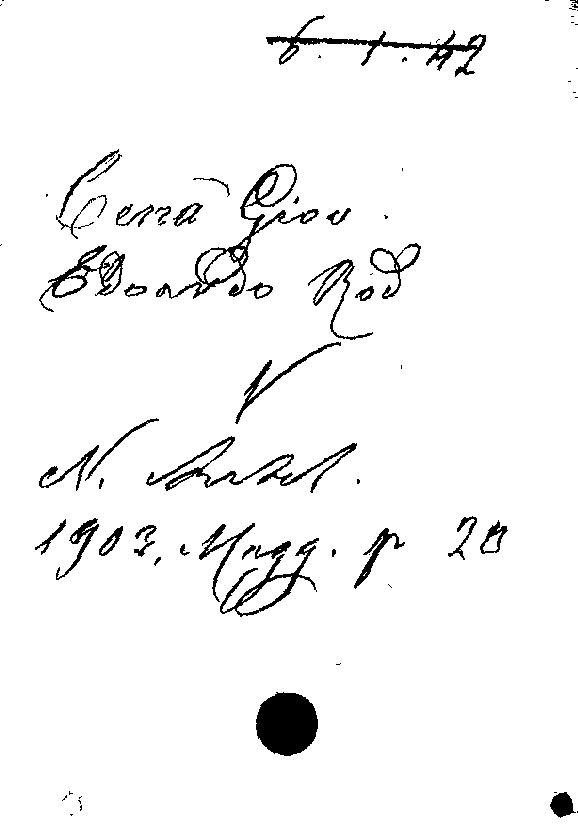 6. 1. 42
Cenà Giov.
Edoardo Rod
V
N. Antol.
1903, Magg. p 20